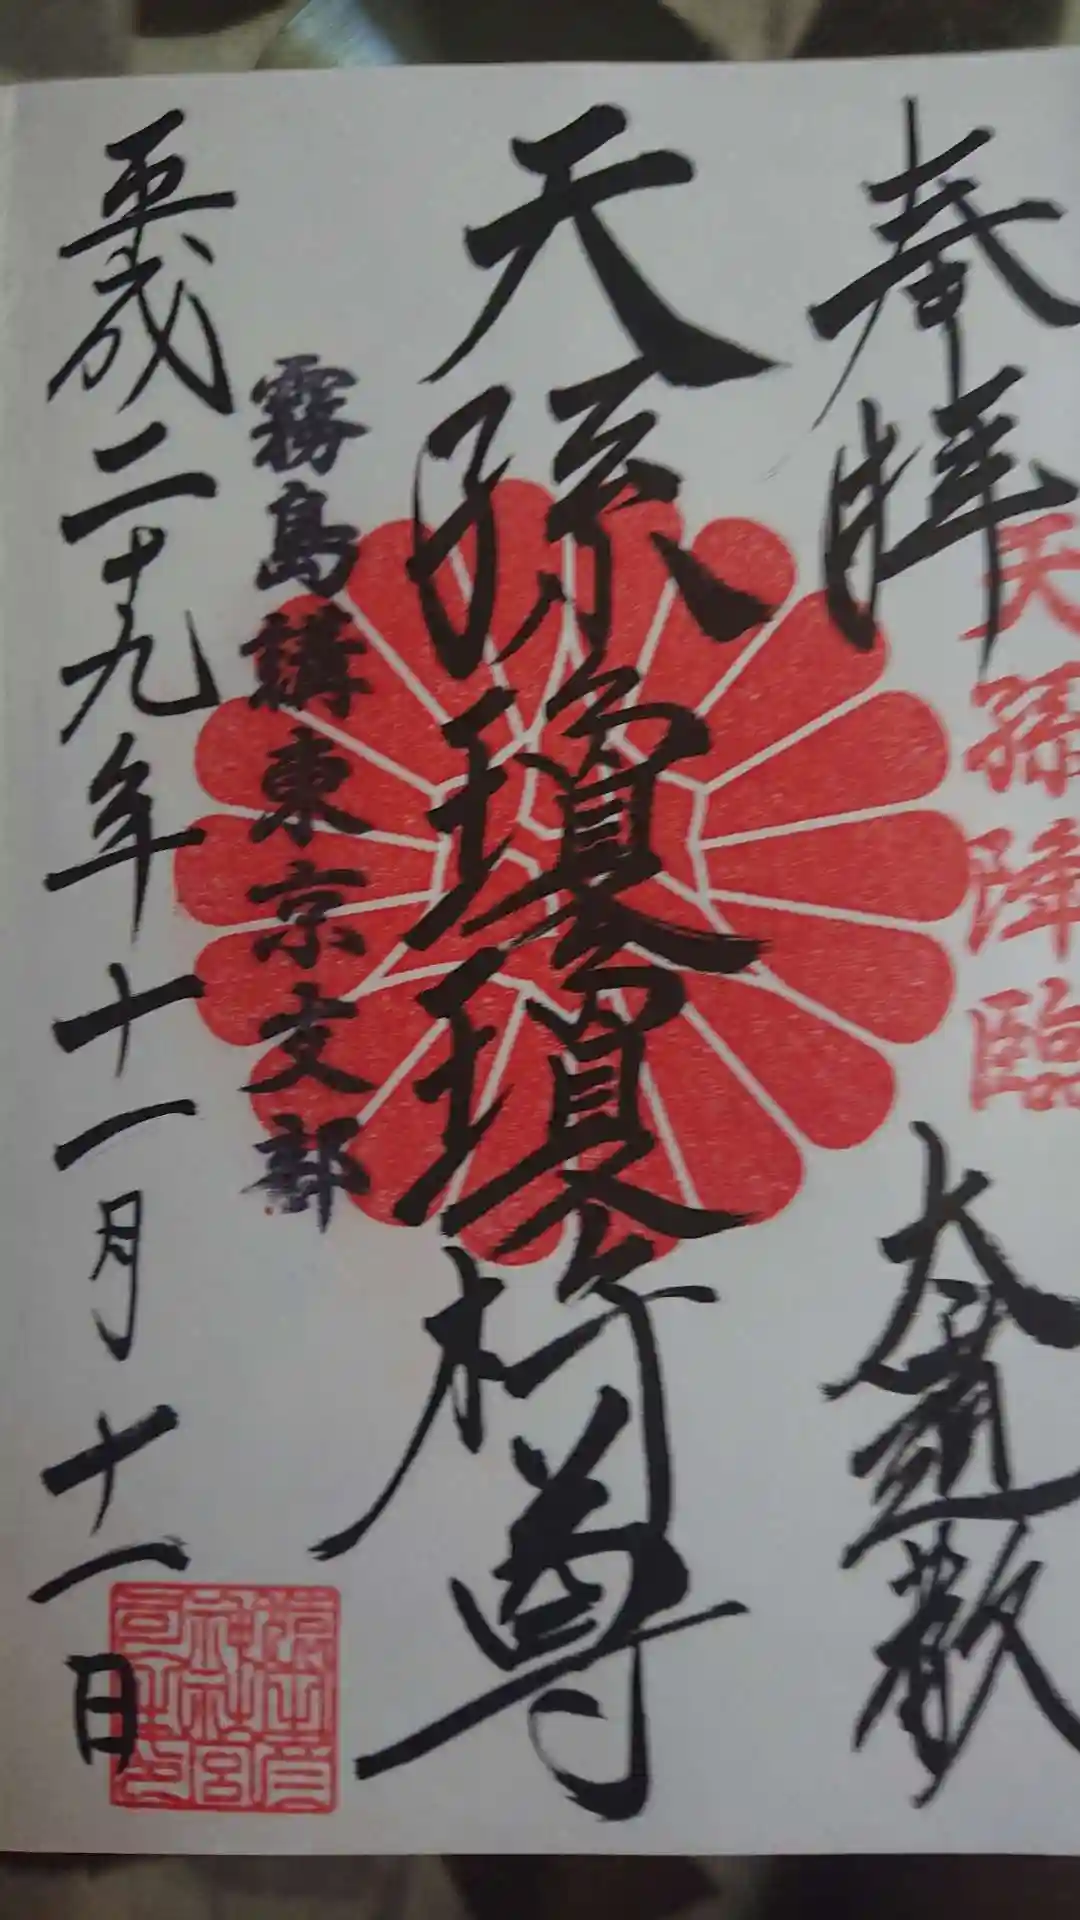 奉拝
天孫降臨
大麻頒
天孫瓊瓊杵尊
霧島講東京支部
平成二十九年十一月十一日